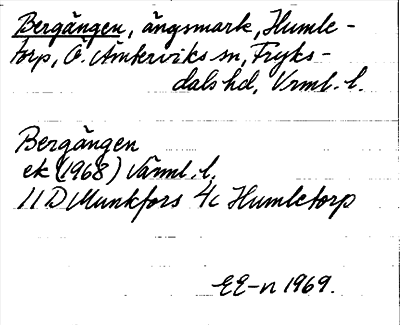 Bergängen, ängsmark, Humle-
torp, Ö. Ämterviks sn, Fryks-
dals hd, Vrml. l.
Bergängen
ek (1968) Värml. l.
11 D Munkfors 4c Humletorp
EE-n 1969.